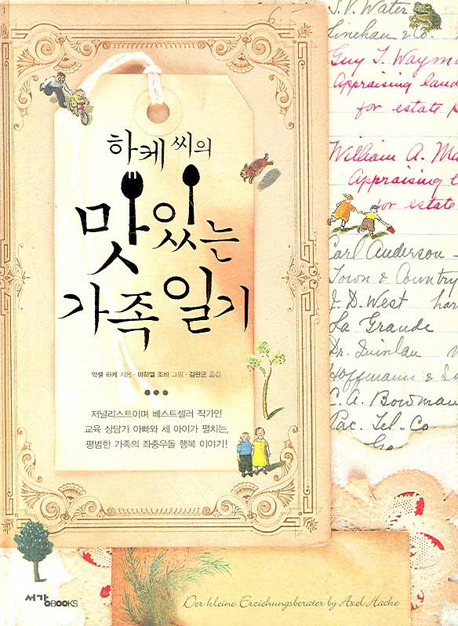 하케 씨의
맛있는
가족 일기
악셀 하케 지음 · 미하엘 조바 그림 · 김완균 옮김
저널리스트이며 베스트셀러 작가인
교육 상담가 아빠와 세 아이가 펼치는,
평범한 가족의 좌충우돌 행복 이야기!
S.V. Water
Linehan & Co.
Guy T. Waym
Appraising land
for estate p
William A. Ma
Appraising t
for estate
Carl Anderson -
Town & Country
J.D. West har
La Grande
Dr. Quinlan
Hoffmann &
C.A. Bowman
Pac. Tel. Co.
서강BOOKS
Der kleine Erziehungsberater by Axel Hacke